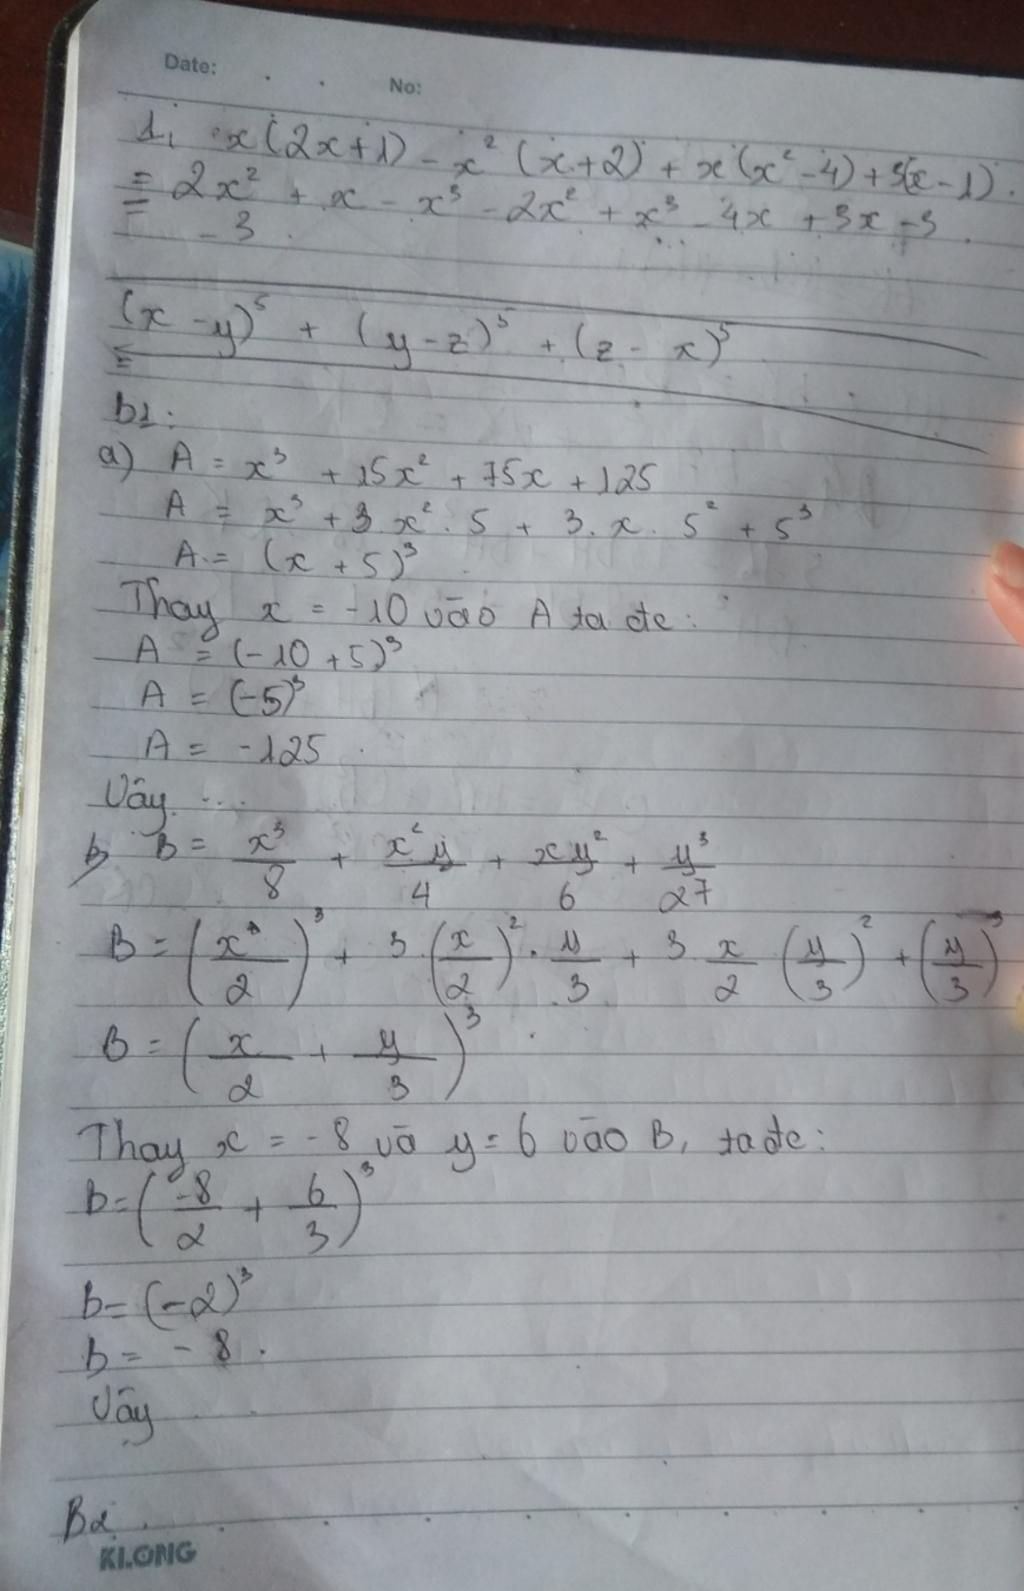 Date: . . No:
1, x(2x+1) - x² (x+2) + x(x²-4) + 3(x-1).
= 2x² + x - x³ - 2x² + x³ - 4x + 3x - 3.
= -3.
(x-y)⁵ + (y-z)⁵ + (z-x)⁵
=
b1:
a) A = x³ + 15x² + 75x + 125
A = x³ + 3 x². 5 + 3. x. 5² + 5³
A = (x + 5)³
Thay x = -10 vào A ta đc:
A = (-10 + 5)³
A = (-5)³
A = -125.
Vậy ...
b) B = x³/8 + x²y/4 + xy²/6 + y³/27
B = (x/2)³ + 3.(x/2)². y/3 + 3 x/2 (y/3)² + (y/3)³
B = (x/2 + y/3)³.
Thay x = -8 và y = 6 vào B, ta đc:
B = (-8/2 + 6/3)³
B = (-2)³
B = -8.
Vậy ...
B2.
KLONG